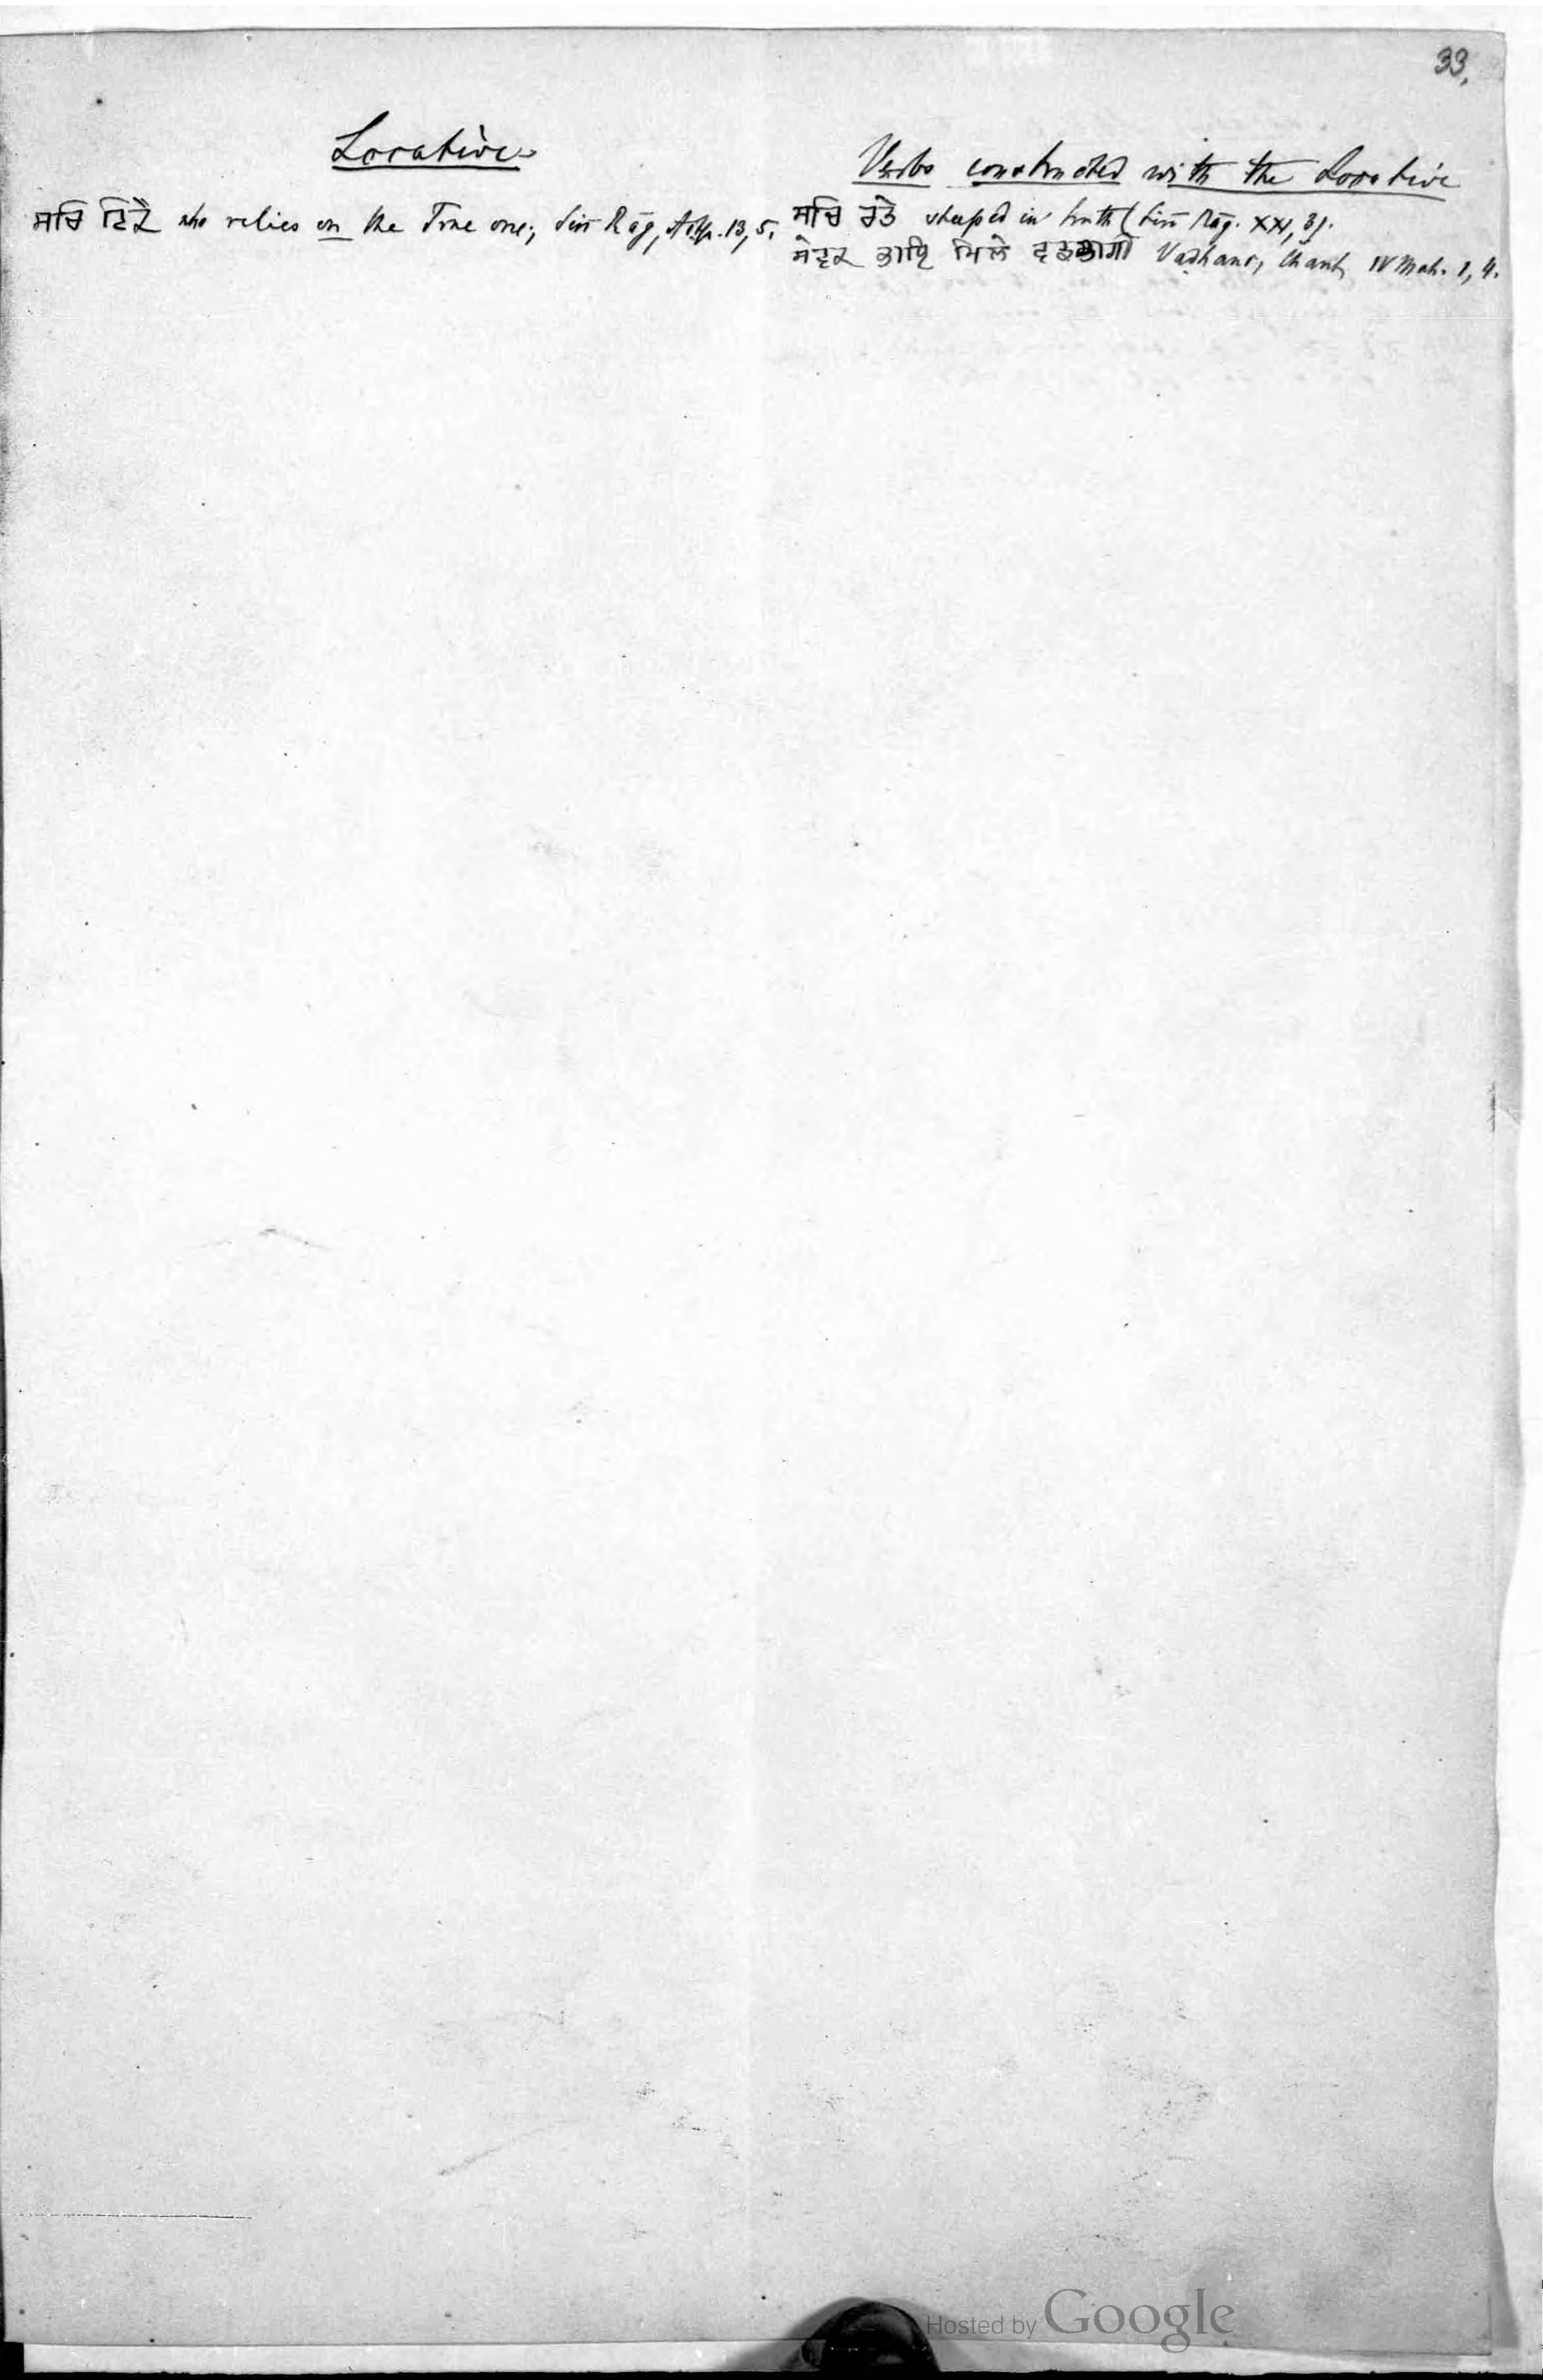 33.
Locative
ਸਚਿ ਟਿਕੈ who relies on the True one; Siri Rāg, Aṣṭp. 13, 5.
Verbs constructed with the Locative
ਸਚਿ ਰਤੇ steeped in truth (Siri Rāg. XXI, 3).
ਸੇਵਕ ਭਾਇ ਮਿਲੇ ਵਡਭਾਗੀ Vaḍhans, Chant, IV Mah. 1, 4.
Hosted by Google